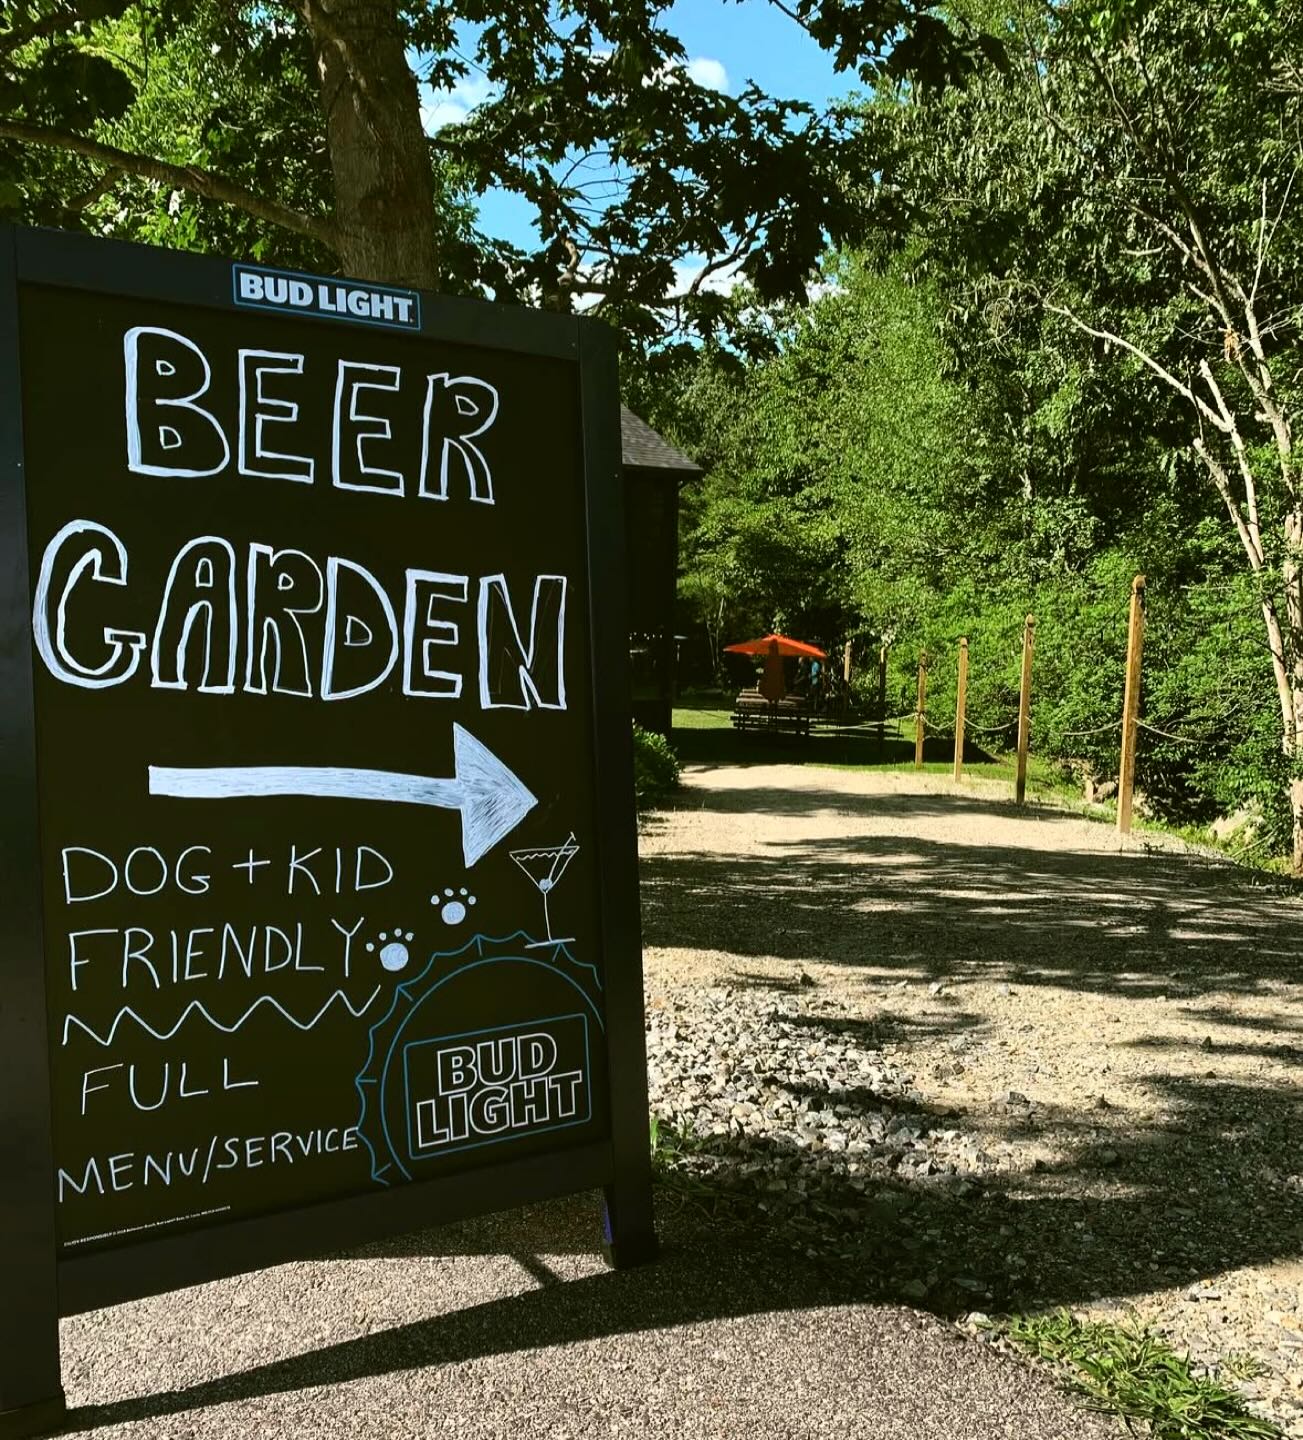 BUD LIGHT
BEER
GARDEN
DOG + KID
FRIENDLY
FULL
MENU/SERVICE
BUD
LIGHT